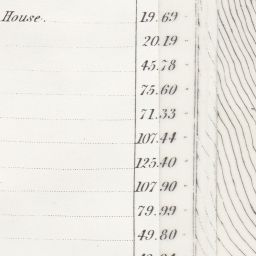 House. 19.69
20.19
45.78
75.60
71.33
107.44
125.40
107.90
79.99
49.80